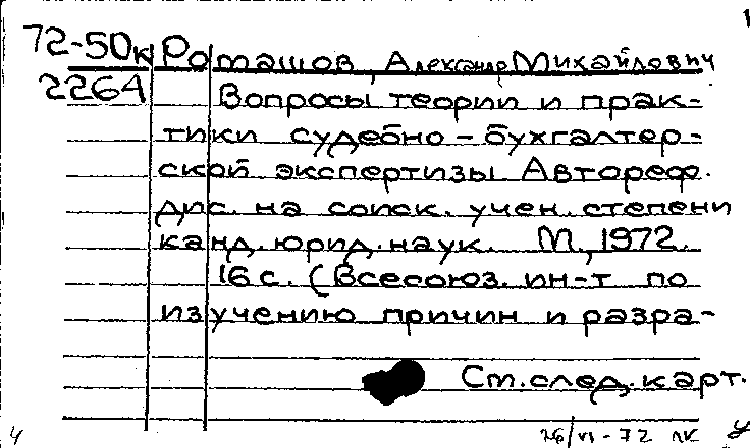 72-50к Роmашов, Александр Михайлович
2264 Вопросы теории и прак-
тики судебно-бухгалтер-
ской экспертизы Автореф.
дис. на соиск. учен. степени
канд. юрид. наук. М., 1972.
16 с. (Всесоюз. ин-т по
изучению причин и разра-
Ст. след. карт.
26/VI-72 лк